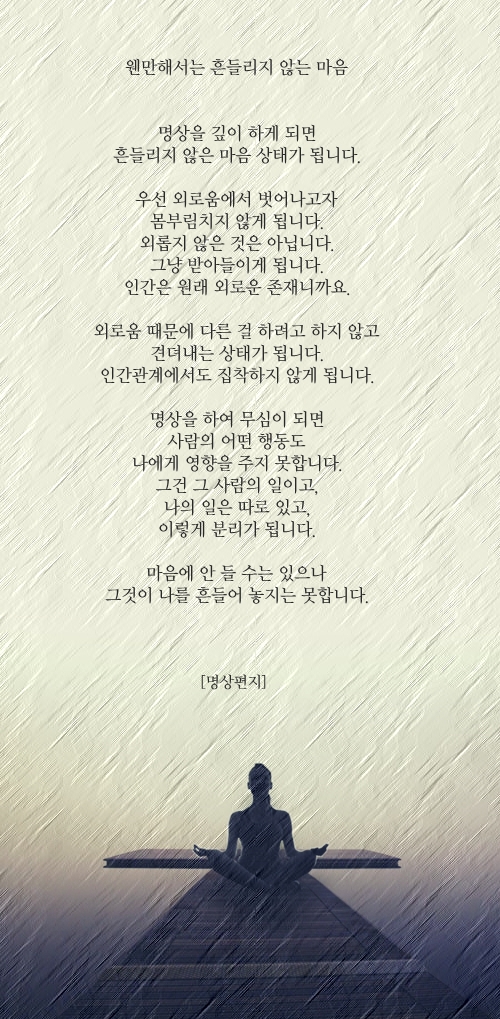 웬만해서는 흔들리지 않는 마음
명상을 깊이 하게 되면
흔들리지 않은 마음 상태가 됩니다.
우선 외로움에서 벗어나고자
몸부림치지 않게 됩니다.
외롭지 않은 것은 아닙니다.
그냥 받아들이게 됩니다.
인간은 원래 외로운 존재니까요.
외로움 때문에 다른 걸 하려고 하지 않고
견뎌내는 상태가 됩니다.
인간관계에서도 집착하지 않게 됩니다.
명상을 하여 무심이 되면
사람의 어떤 행동도
나에게 영향을 주지 못합니다.
그건 그 사람의 일이고,
나의 일은 따로 있고,
이렇게 분리가 됩니다.
마음에 안 들 수는 있으나
그것이 나를 흔들어 놓지는 못합니다.
[명상편지]